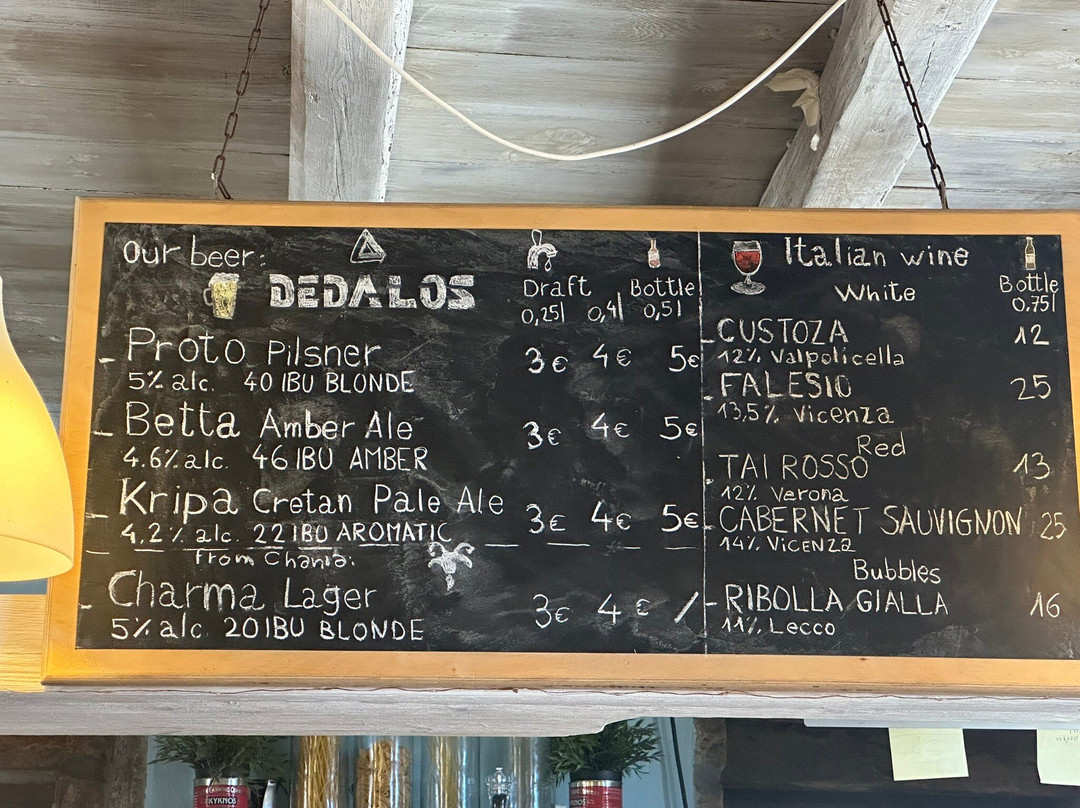 Our beer:
DEDALOS
Draft Bottle
0,25l 0,4l 0,5l
- Proto Pilsner 3€ 4€ 5€
5% alc. 40 IBU BLONDE
- Betta Amber Ale 3€ 4€ 5€
4.6% alc. 46 IBU AMBER
- Kripa Cretan Pale Ale 3€ 4€ 5€
4,2% alc. 22 IBU AROMATIC
from Chania:
- Charma Lager 3€ 4€ /
5% alc 20 IBU BLONDE
Italian wine
White
Bottle
0,75l
- CUSTOZA 12
12% Valpolicella
- FALESIO 25
13,5% Vicenza
Red
- TAI ROSSO 13
12% Verona
- CABERNET SAUVIGNON 25
14% Vicenza
Bubbles
- RIBOLLA GIALLA 16
11% Lecco
KYKNOS